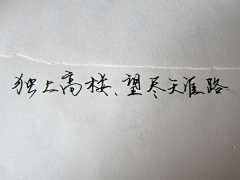 独上高楼、望尽天涯路